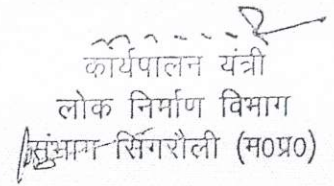 कार्यपालन यंत्री
लोक निर्माण विभाग
संभाग सिंगरौली (म0प्र0)